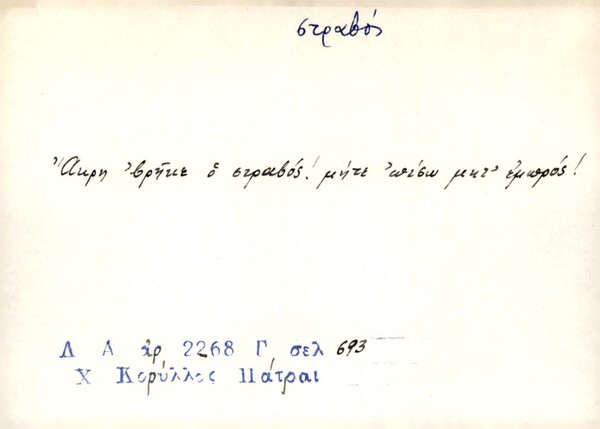 στραβός
Ἄκρη ᾿βρῆκε ὁ στραβός! μήτε ᾿πίσω μητ᾿ ἐμπρός!
Λ Α ἀρ 2268 Γ σελ 693
Χ Κορύλλος Πάτραι